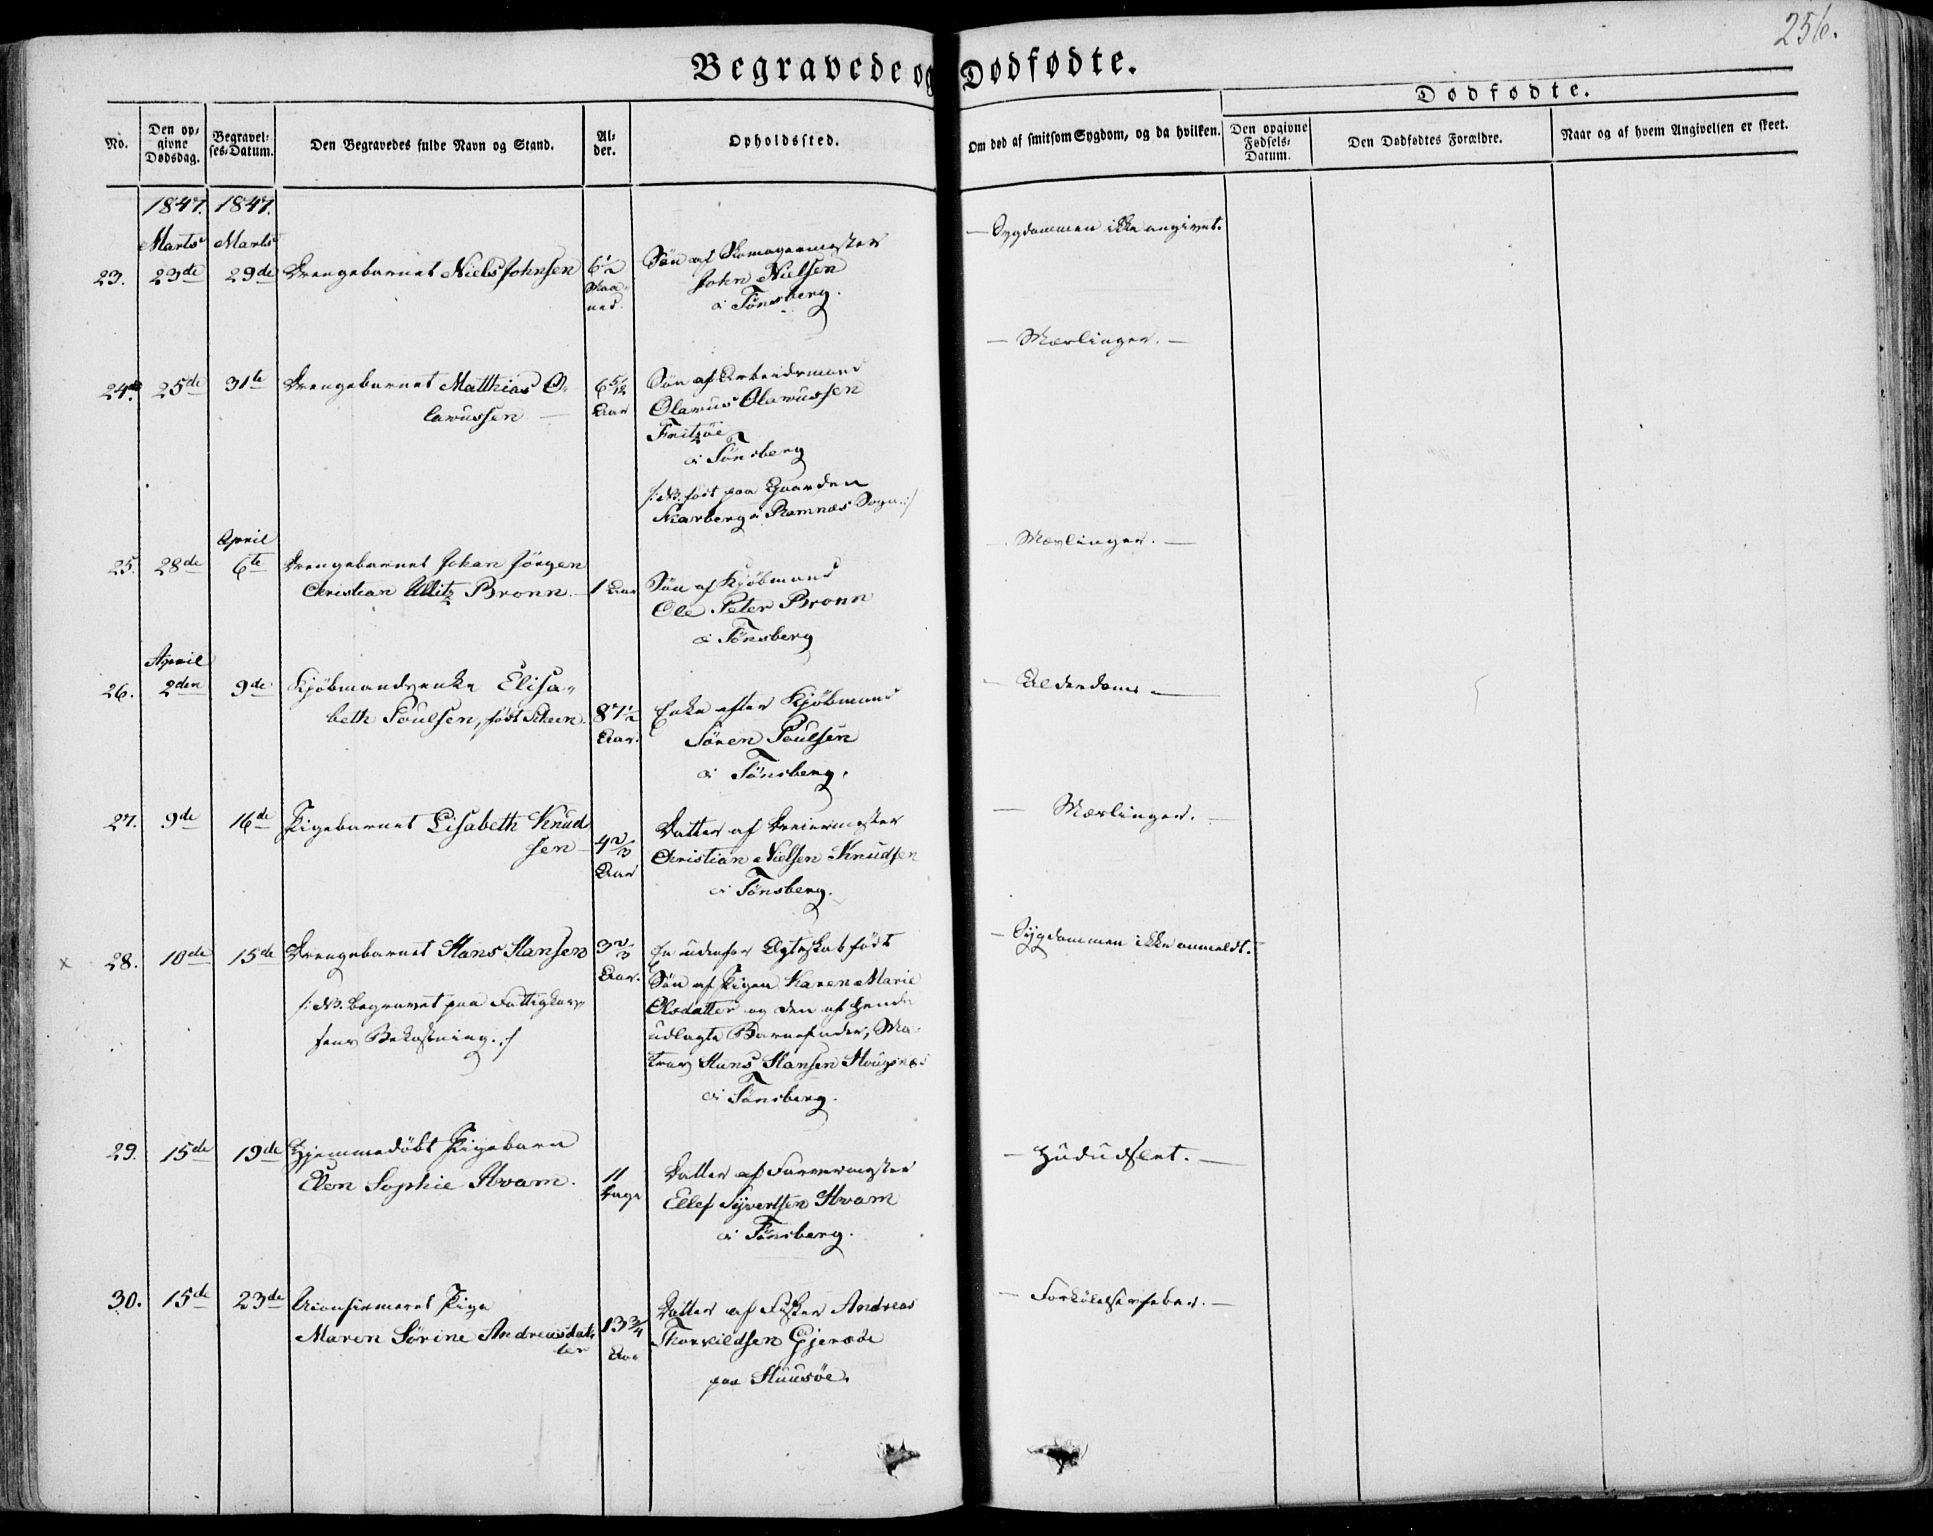 256.
Begravede og Dødfødte.
Dødfødte.
No.
Den op-
givne
Dødsdag.
Begravel-
ses-Datum.
Den Begravedes fulde Navn og Stand.
Al-
der.
Opholdssted.
Om død af smitsom Sygdom, og da hvilken.
Den opgivne
Fødsels-
Datum.
Den Dødfødtes Forældre.
Naar og af hvem Angivelsen er skeet.
1847. 1847.
Marts Marts
23. 23de 29de Drengebarnet Niels Johnsen
6½
Maa-
ned.
Søn af Skomagermester
John Nielsen
i Tönsberg.
— Sygdommen ikke angivet.
24. 25de 31te Drengebarnet Matthias O-
larussen —
6 5/12
Aar
Søn af Arbeidsmand
Olarus Olarussen
Fritzöe
i Tönsberg
/: NB. født paa Gaarden
Skarberg i Ramnæs Sogn :/
— Mæslinger. —
April
25. 28de 6te Drengebarnet Johan Jörgen
Christian Ulitz Bronn. —
1 Aar
Søn af Kjøbmand
Ole Peter Bronn
i Tönsberg
— Mæslinger. —
April
26. 2den 9de Kjøbmandsenke Elisa-
beth Poulsen, født Scheen.
87½
Aar.
Enke efter Kjøbmand
Sören Poulsen
i Tönsberg.
— Alderdoms —
27. 9de 16de Pigebarnet Lisabeth Knud
sen —
4⅔
Aar
Datter af Dreiermester
Christian Nielsen Knudsen
i Tönsberg.
— Mæslinger. —
x 28. 10de 15de Drengebarnet Hans Hansen
/: NB. begravet paa Fattigkas-
sens Bekostning. :/
3⅔
Aar.
En udenfor Ægteskab født
Søn af Pigen Karen Marie
Olsdatter og den af hende
udlagte Barnefader, Ma-
tros Hans Hansen Hougnæs
i Tönsberg.
— Sygdommen ikke anmeldt. —
29. 15de 19de Hjemmedöbt Pigebarn
Elen Sophie Hvam.
11
Dage
Datter af Farvermester
Ellef Syvertsen Hvam
i Tönsberg.
— Hududslet. —
30. 15de 23de Uconfirmeret Pige
Maren Sörine Andreasdat-
ter
13¾
Aar
Datter af Fisker Andreas
Thorkildsen Gjeræe
paa Huusöe.
— Forkölelsesfeber. —